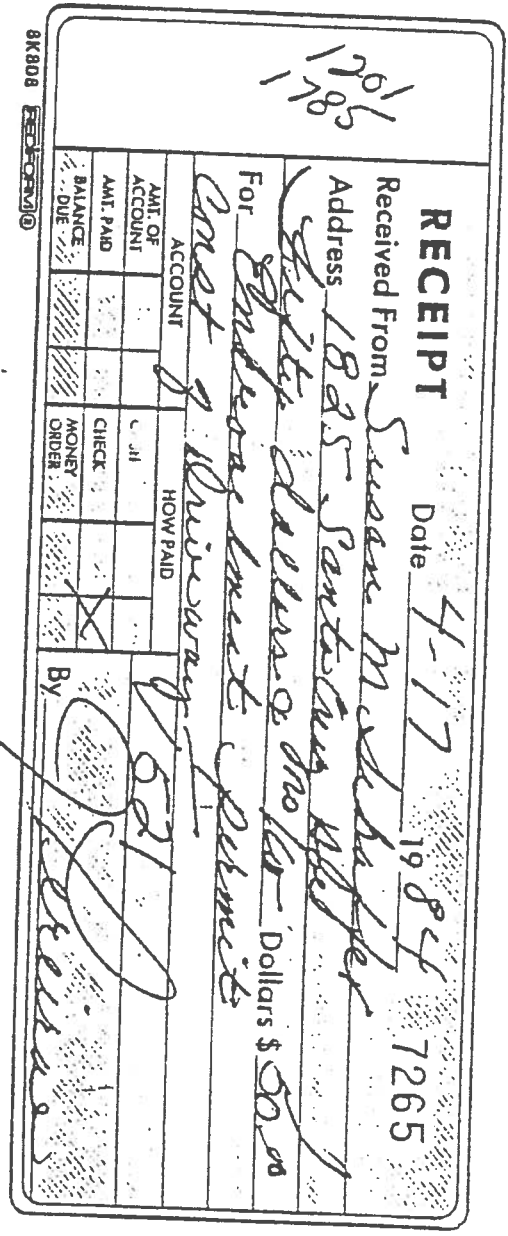 1201
1785
RECEIPT Date 4-17 1984 7265
Received From Susan M
Address 1825 Santa Cruz
Fifty dollars & no/100 Dollars $ 50.00
For Encroachment Permit
Const of Driveway
ACCOUNT HOW PAID
AMT. OF ACCOUNT
AMT. PAID CHECK
BALANCE DUE MONEY ORDER X
By
8K808 REDIFORM®